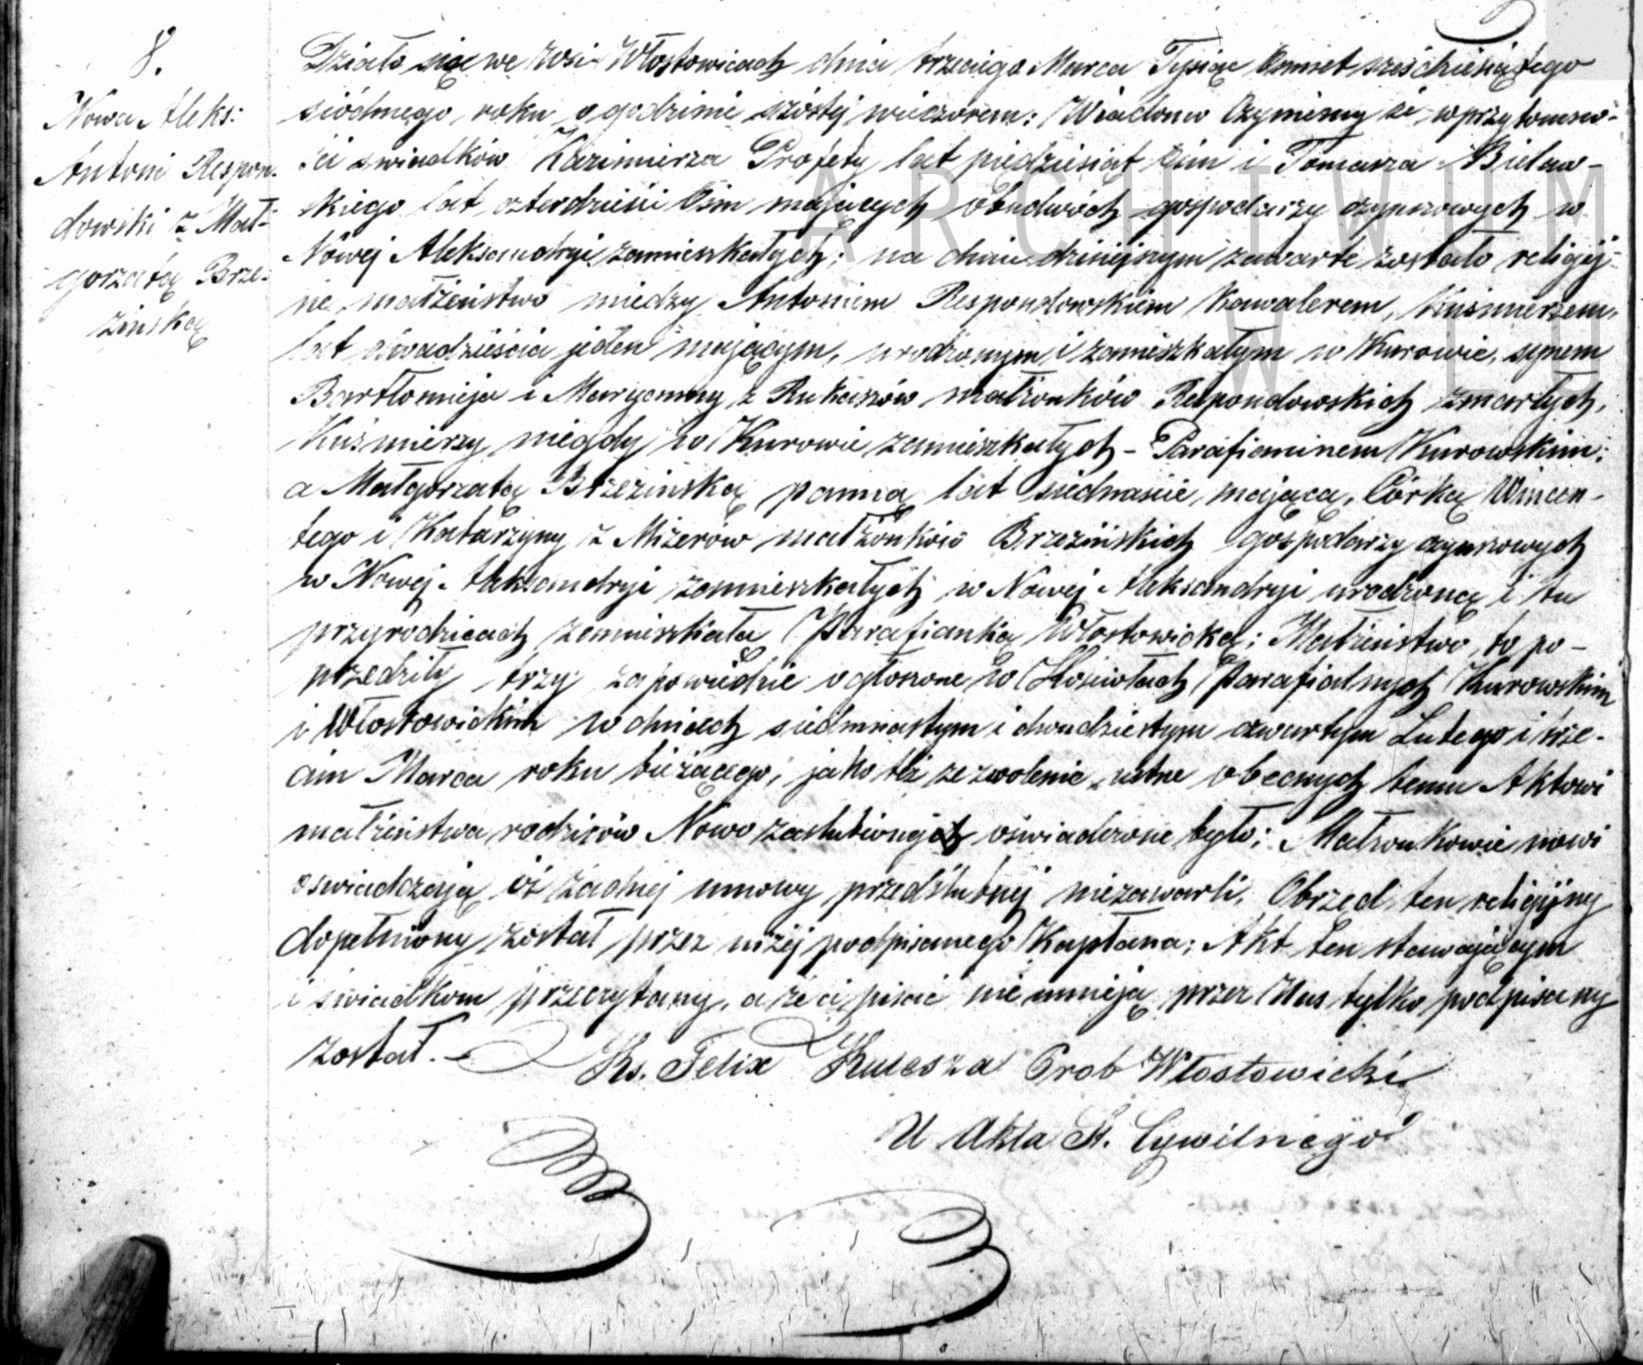 8.
Nowa Aleks:
Antoni Respon-
dowski z Mał-
gorzatą Brze-
zińską
Działo się we Wsi Włostowicach dnia trzeciego Marca Tysiąc Ośmset sześćdziesiątego
siódmego roku o godzinie szóstej wieczorem: Wiadomo Czyniemy że w przytomno-
ści swiadków Kazimierza Profety lat piędziesiąt Ośm i Tomasza Bielaw-
skiego lat czterdzieści Ośm mających obudwóch gospodarzy czynszowych w
Nowej Aleksandryi zamieszkałych; na dniu dzisiejszym zawarte zostało religij-
ne małżeństwo między Antonim Respondowskiem Kawalerem, Kuśmierzem,
lat dwadzieścia jeden mającym, urodzonym i zamieszkałym w Kurowie, synem
Bartłomieja i Maryanny z Rukaszów małżonków Respondowskich zmarłych,
Kuśmierzy niegdy w Kurowie zamieszkałych - Parafianinem Kurowskim;
a Małgorzatą Brzezińską panną lat siedmnaście mającą, Córką Wincen-
tego i Katarzyny z Mizerów małżonków Brzezińskich gospodarzy czynszowych
w Nowej Aleksandryi zamieszkałych w Nowej Aleksandryi urodzoną i tu
przyrodzicach zamieszkałą Parafianką Włostowicką: Małżeństwo to po-
przedziły trzy zapowiedzie ogłoszone w Kościołach Parafialnych Kurowskim
i Włostowickim w dniach siedmnastym i dwudziestym czwartym Lutego i trze-
cim Marca roku bieżącego, jako też zezwolenie ustne obecnych temu Aktowi
małżeństwa rodziców Nowo zaslubionych oświadczone było; Małżonkowie nowi
oswiadczają iż żadnej umowy przedślubnej niezawarli. Obrzęd ten religijny
dopełniony został przez niżej podpisanego Kapłana; Akt ten stawającym
i świadkom przeczytany, a że ci pisać nie umieją przez Nas tylko podpisany
został. -
Ks. Felix Kulesza Prob Włostowicki
U Akta St. Cywilnego
ARCHIWUM
W LU